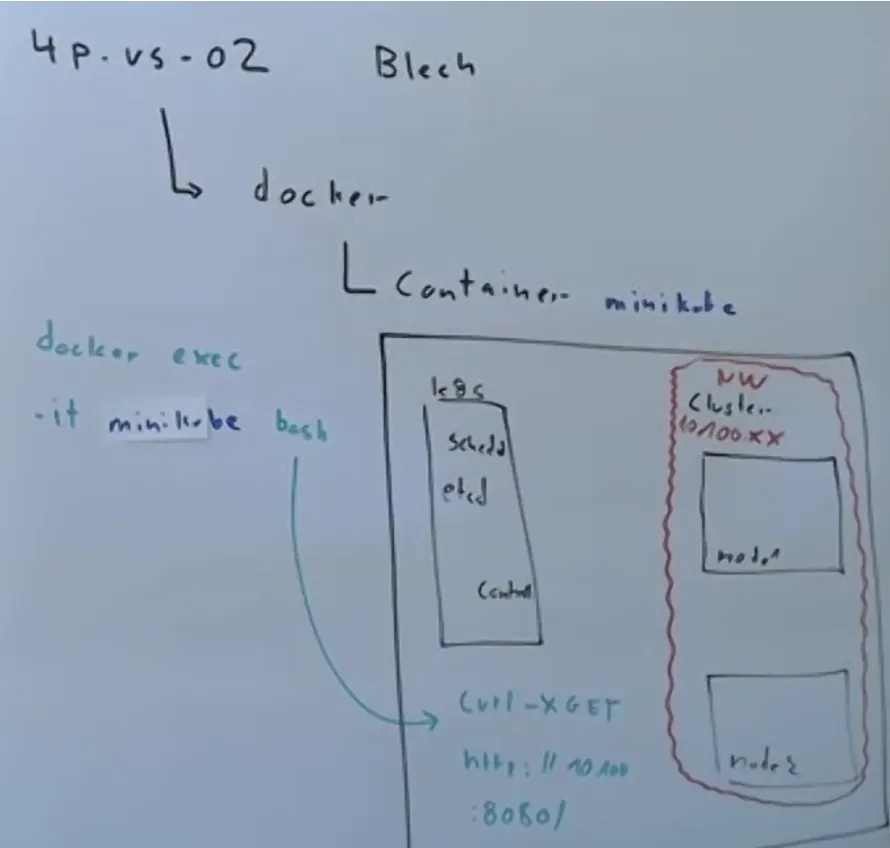 4p.vs-02 Blech
docker
Container minikube
docker exec
-it minikube bash
k8s
Sched
etcd
Control
NW
Cluster
10.100.XX
node1
node2
Curl -XGET
http://10.100
:8080/